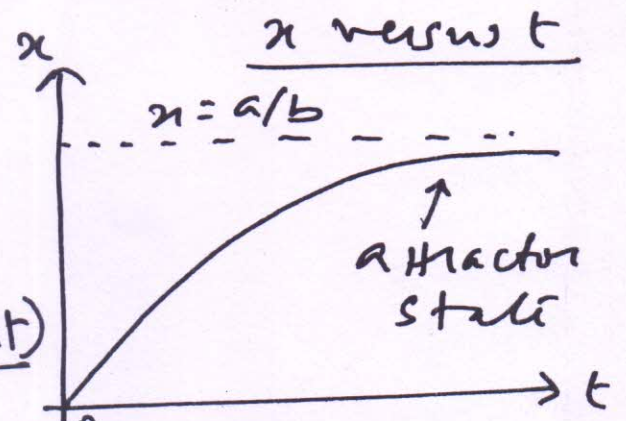 x versus t
x
x = a/b
attractor
state
t)
t
0